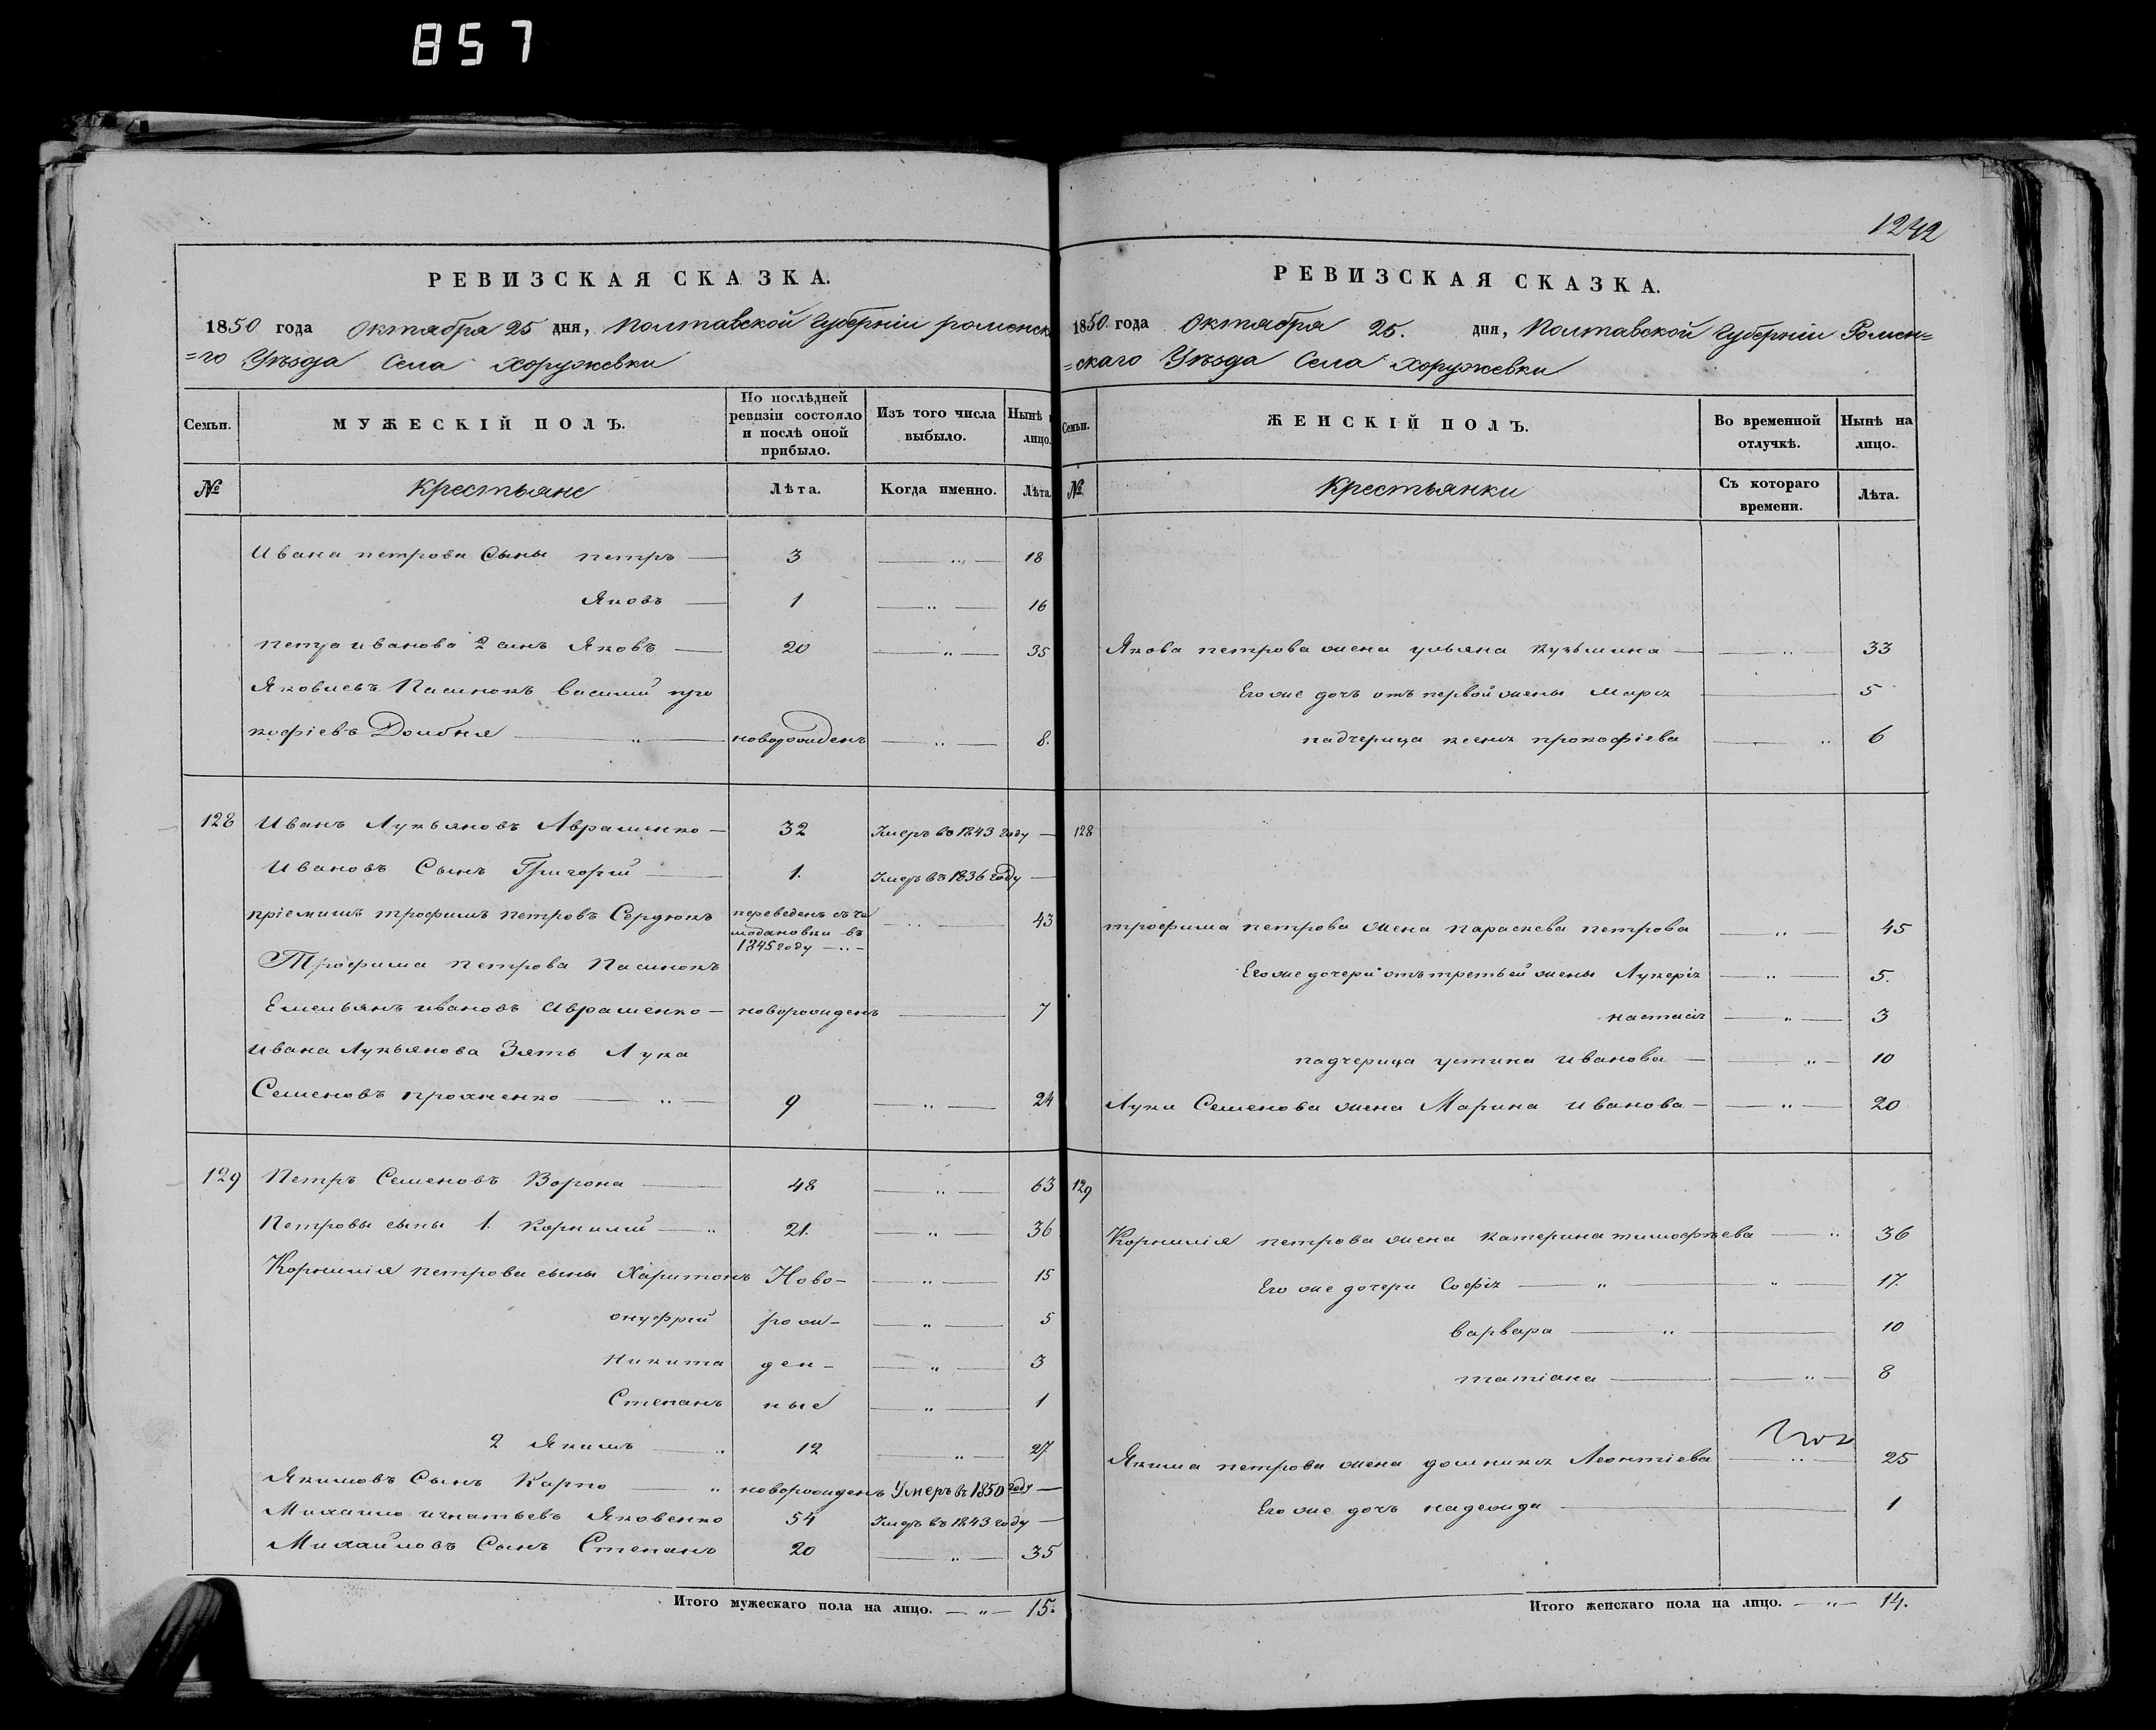 857
РЕВИЗСКАЯ СКАЗКА.
1850 года Октября 25 дня, Полтавской Губерніи роменска
=го Уѣзда Села Хоружевки
Семьи. МУЖЕСКІЙ ПОЛЪ. По послѣдней ревизіи состояло и послѣ оной прибыло. Изъ того числа выбыло. Нынѣ лицо.
№ Крестьяне Лѣта. Когда именно. Лѣта
Ивана петрова Сыны петръ — 3 — „ — 18
Яковъ — 1 — „ — 16
петра иванова 2 сынъ Яковъ — 20 — „ — 35
Яковлевъ Пасынокъ василий про
кофіевъ Долбня — „ — новорожденъ — „ — 8.
128 Иванъ Лукьяновъ Авраменко — 32 Умеръ въ 1843 году —
Ивановъ Сынъ Григорій — 1. Умеръ въ 1836 году —
пріемышъ трофимъ петровъ Сердюкъ переведенъ съ ча — „ — 43
модановки въ
1845 году — „ —
Трофима петрова Пасынокъ
Емельянъ ивановъ Авраменко — новорожденъ — 7
Ивана Лукьянова Зять Лука
Семеновъ прохненко — „ — 9 — „ — 24
129 Петръ Семеновъ Ворона — 48 — „ — 63
Петровы сыны 1. Корнилій — „ 21. — „ — 36
Корнилія петрова сыны Харитонъ Ново- — „ — 15
онуфрій рож- — „ — 5
никита ден- — „ — 3
Степанъ ные — „ — 1
2 Якимъ — „ 12 — „ — 27.
Якимовъ Сынъ Карпо — „ новорожденъ Умеръ въ 1850 году —
Михайло игнатьевъ Яковенко 54 Умеръ въ 1843 году —
Михайловъ Сынъ Степанъ 20 — „ — 35
Итого мужескаго пола на лицо. — „ — 15.
1242
РЕВИЗСКАЯ СКАЗКА.
1850 года Октября 25. дня, Полтавской Губерніи Ромен=
=скаго Уѣзда Села Хоружевки
Семьи. ЖЕНСКІЙ ПОЛЪ. Во временной отлучкѣ. Нынѣ на лицо.
№ Крестьянки Съ котораго времени. Лѣта.
Якова петрова жена ульяна кузьмина — „ — 33
Его же дочь отъ первой жены Марія — 5
падчерица ксенія прокофіева — „ 6
128
трофима петрова жена параскева петрова — „ — 45
Его же дочери отъ третьей жены Лукерія — „ — 5.
настасія — „ — 3
падчерица устина иванова — „ — 10
Луки Семенова жена Марина иванова — „ — 20
129
Корнилія петрова жена катерина тимофѣева — „ 36
Его же дочери Софія — „ — „ — 17.
варвара — „ — 10
татіана — „ — 8
Якима петрова жена домникія Леонтіева — „ — 25
Его же дочь надежда — 1
Итого женскаго пола на лицо. — „ — 14.